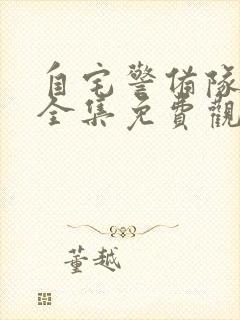 自宅警備隊
全集免費觀
董越